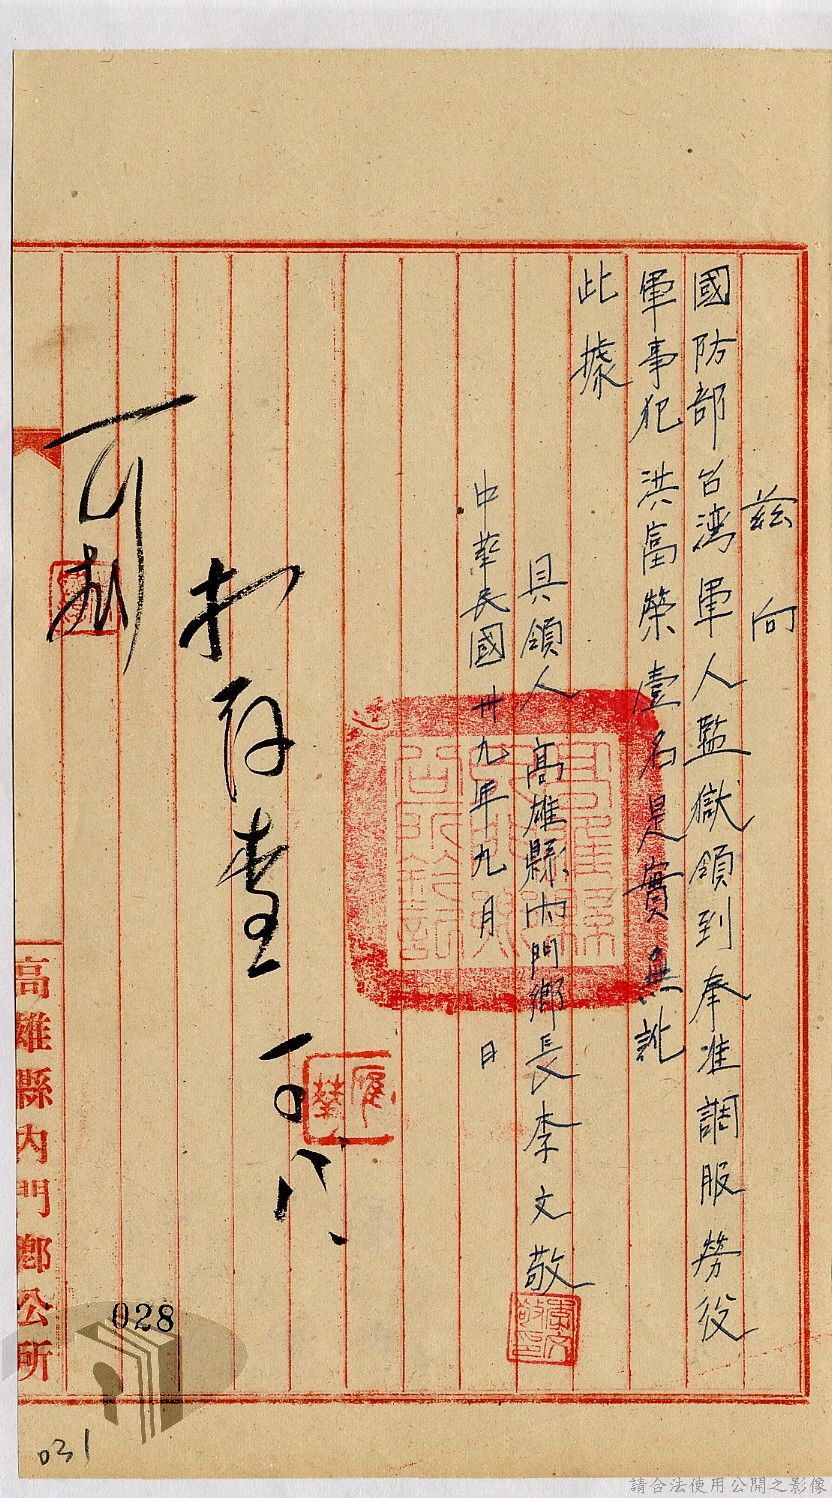 茲向
國防部台湾軍人監獄領到奉准調服勞役
軍事犯洪富榮壹名是實無訛
此據
具領人 高雄縣內門鄉長李文敬
中華民國卅九年九月 日
存查
可
高雄縣內門鄉公所
028
031
請合法使用公開之影像